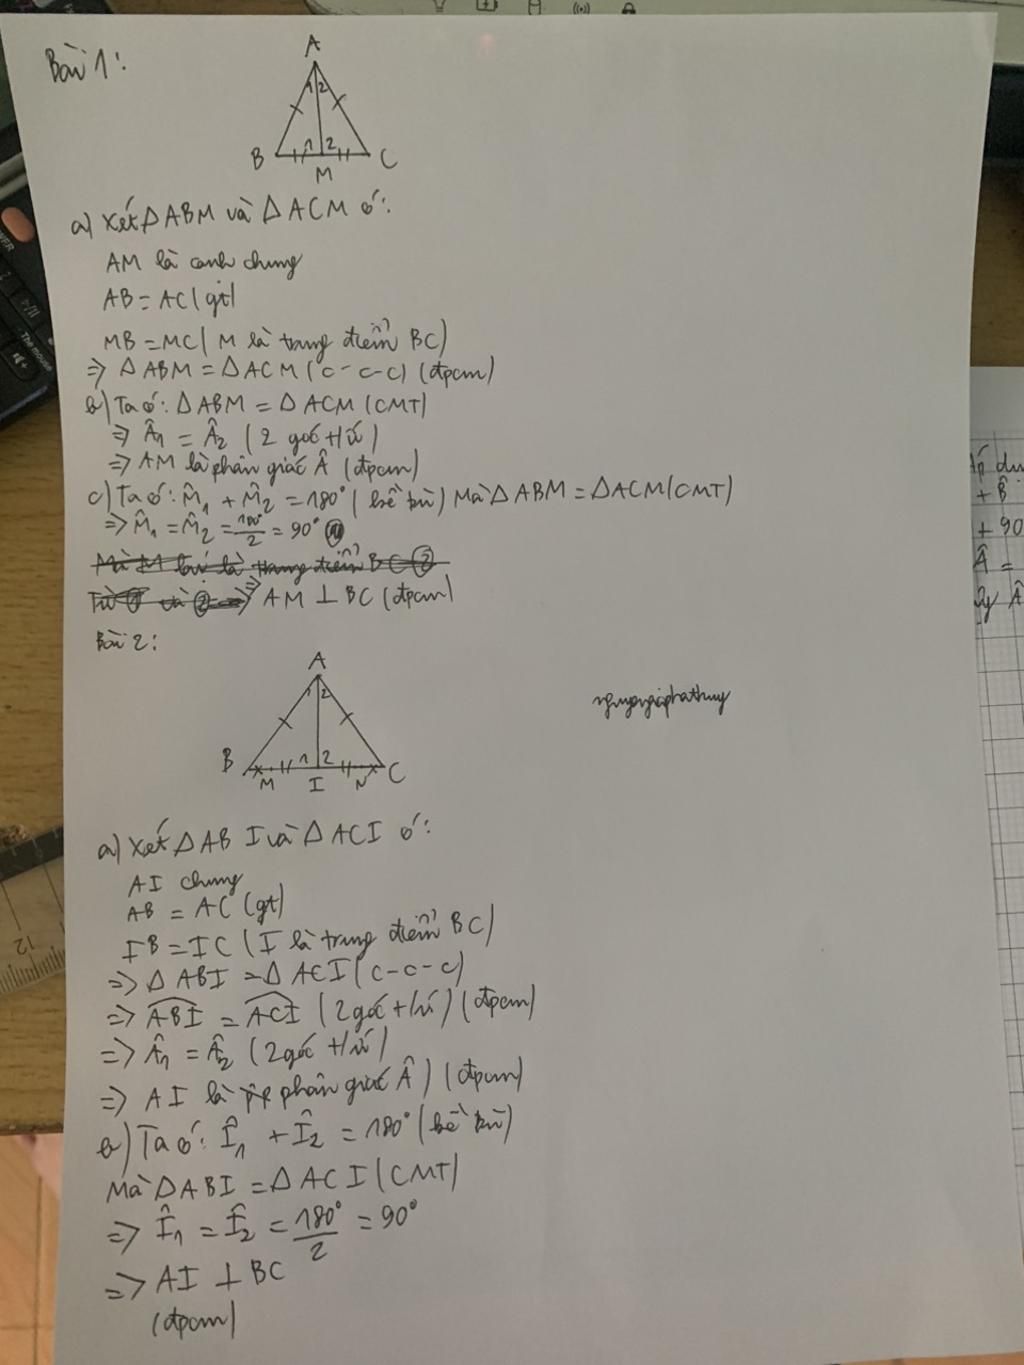 Bài 1:
A
1 2
1 2
B C
M
a) Xét Δ ABM và Δ ACM có:
AM là cạnh chung
AB = AC (gt)
MB = MC ( M là trung điểm BC)
=> Δ ABM = Δ ACM (c-c-c) (đpcm)
b) Ta có: Δ ABM = Δ ACM (CMT)
=> Â1 = Â2 (2 góc t/ứ)
=> AM là phân giác Â (đpcm)
c) Ta có: M̂1 + M̂2 = 180° ( kề bù) Mà Δ ABM = Δ ACM (CMT)
=> M̂1 = M̂2 = 180°/2 = 90°
Mà M lại là trung điểm BC ②
Từ ① và ② => AM ⊥ BC (đpcm)
Bài 2:
A
1 2
nguyengiaphathuy
B 1 2 C
M I N
a) Xét Δ ABI và Δ ACI có:
AI chung
AB = AC (gt)
IB = IC ( I là trung điểm BC)
=> Δ ABI = Δ ACI (c-c-c)
=> ABI = ACI (2 góc t/ứ) (đpcm)
=> Â1 = Â2 (2 góc t/ứ)
=> AI là phân giác Â) (đpcm)
b) Ta có: Î1 + Î2 = 180° (kề bù)
Mà Δ ABI = Δ ACI (CMT)
=> Î1 = Î2 = 180°/2 = 90°
=> AI ⊥ BC
(đpcm)
The mouse
12
+ B̂
+ 90
Â =
Â